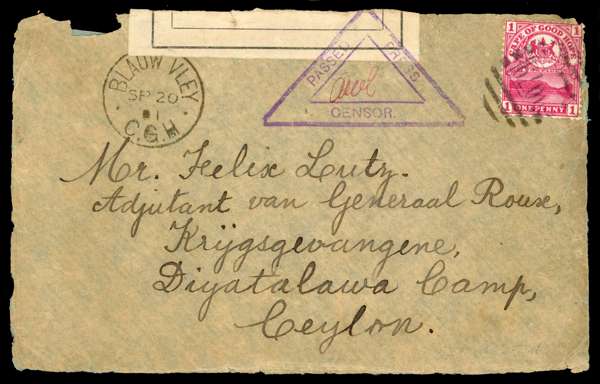 BLAUW VLEY
SP 20
1
C.G.H
PASSED
PRESS
CENSOR.
1 CAPE OF GOOD HOPE 1
1 ONE PENNY 1
Mr. Felix Lutz.
Adjutant van Generaal Roux,
Krijgsgevangene,
Diyatalawa Camp,
Ceylon.